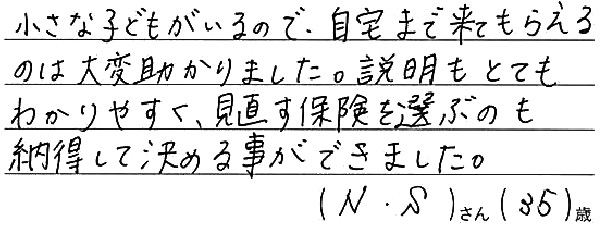 小さな子どもがいるので、自宅まで来てもらえる
のは大変助かりました。説明もとても
わかりやすく、見直す保険を選ぶのも
納得して決める事ができました。
(N・S)さん(35)歳